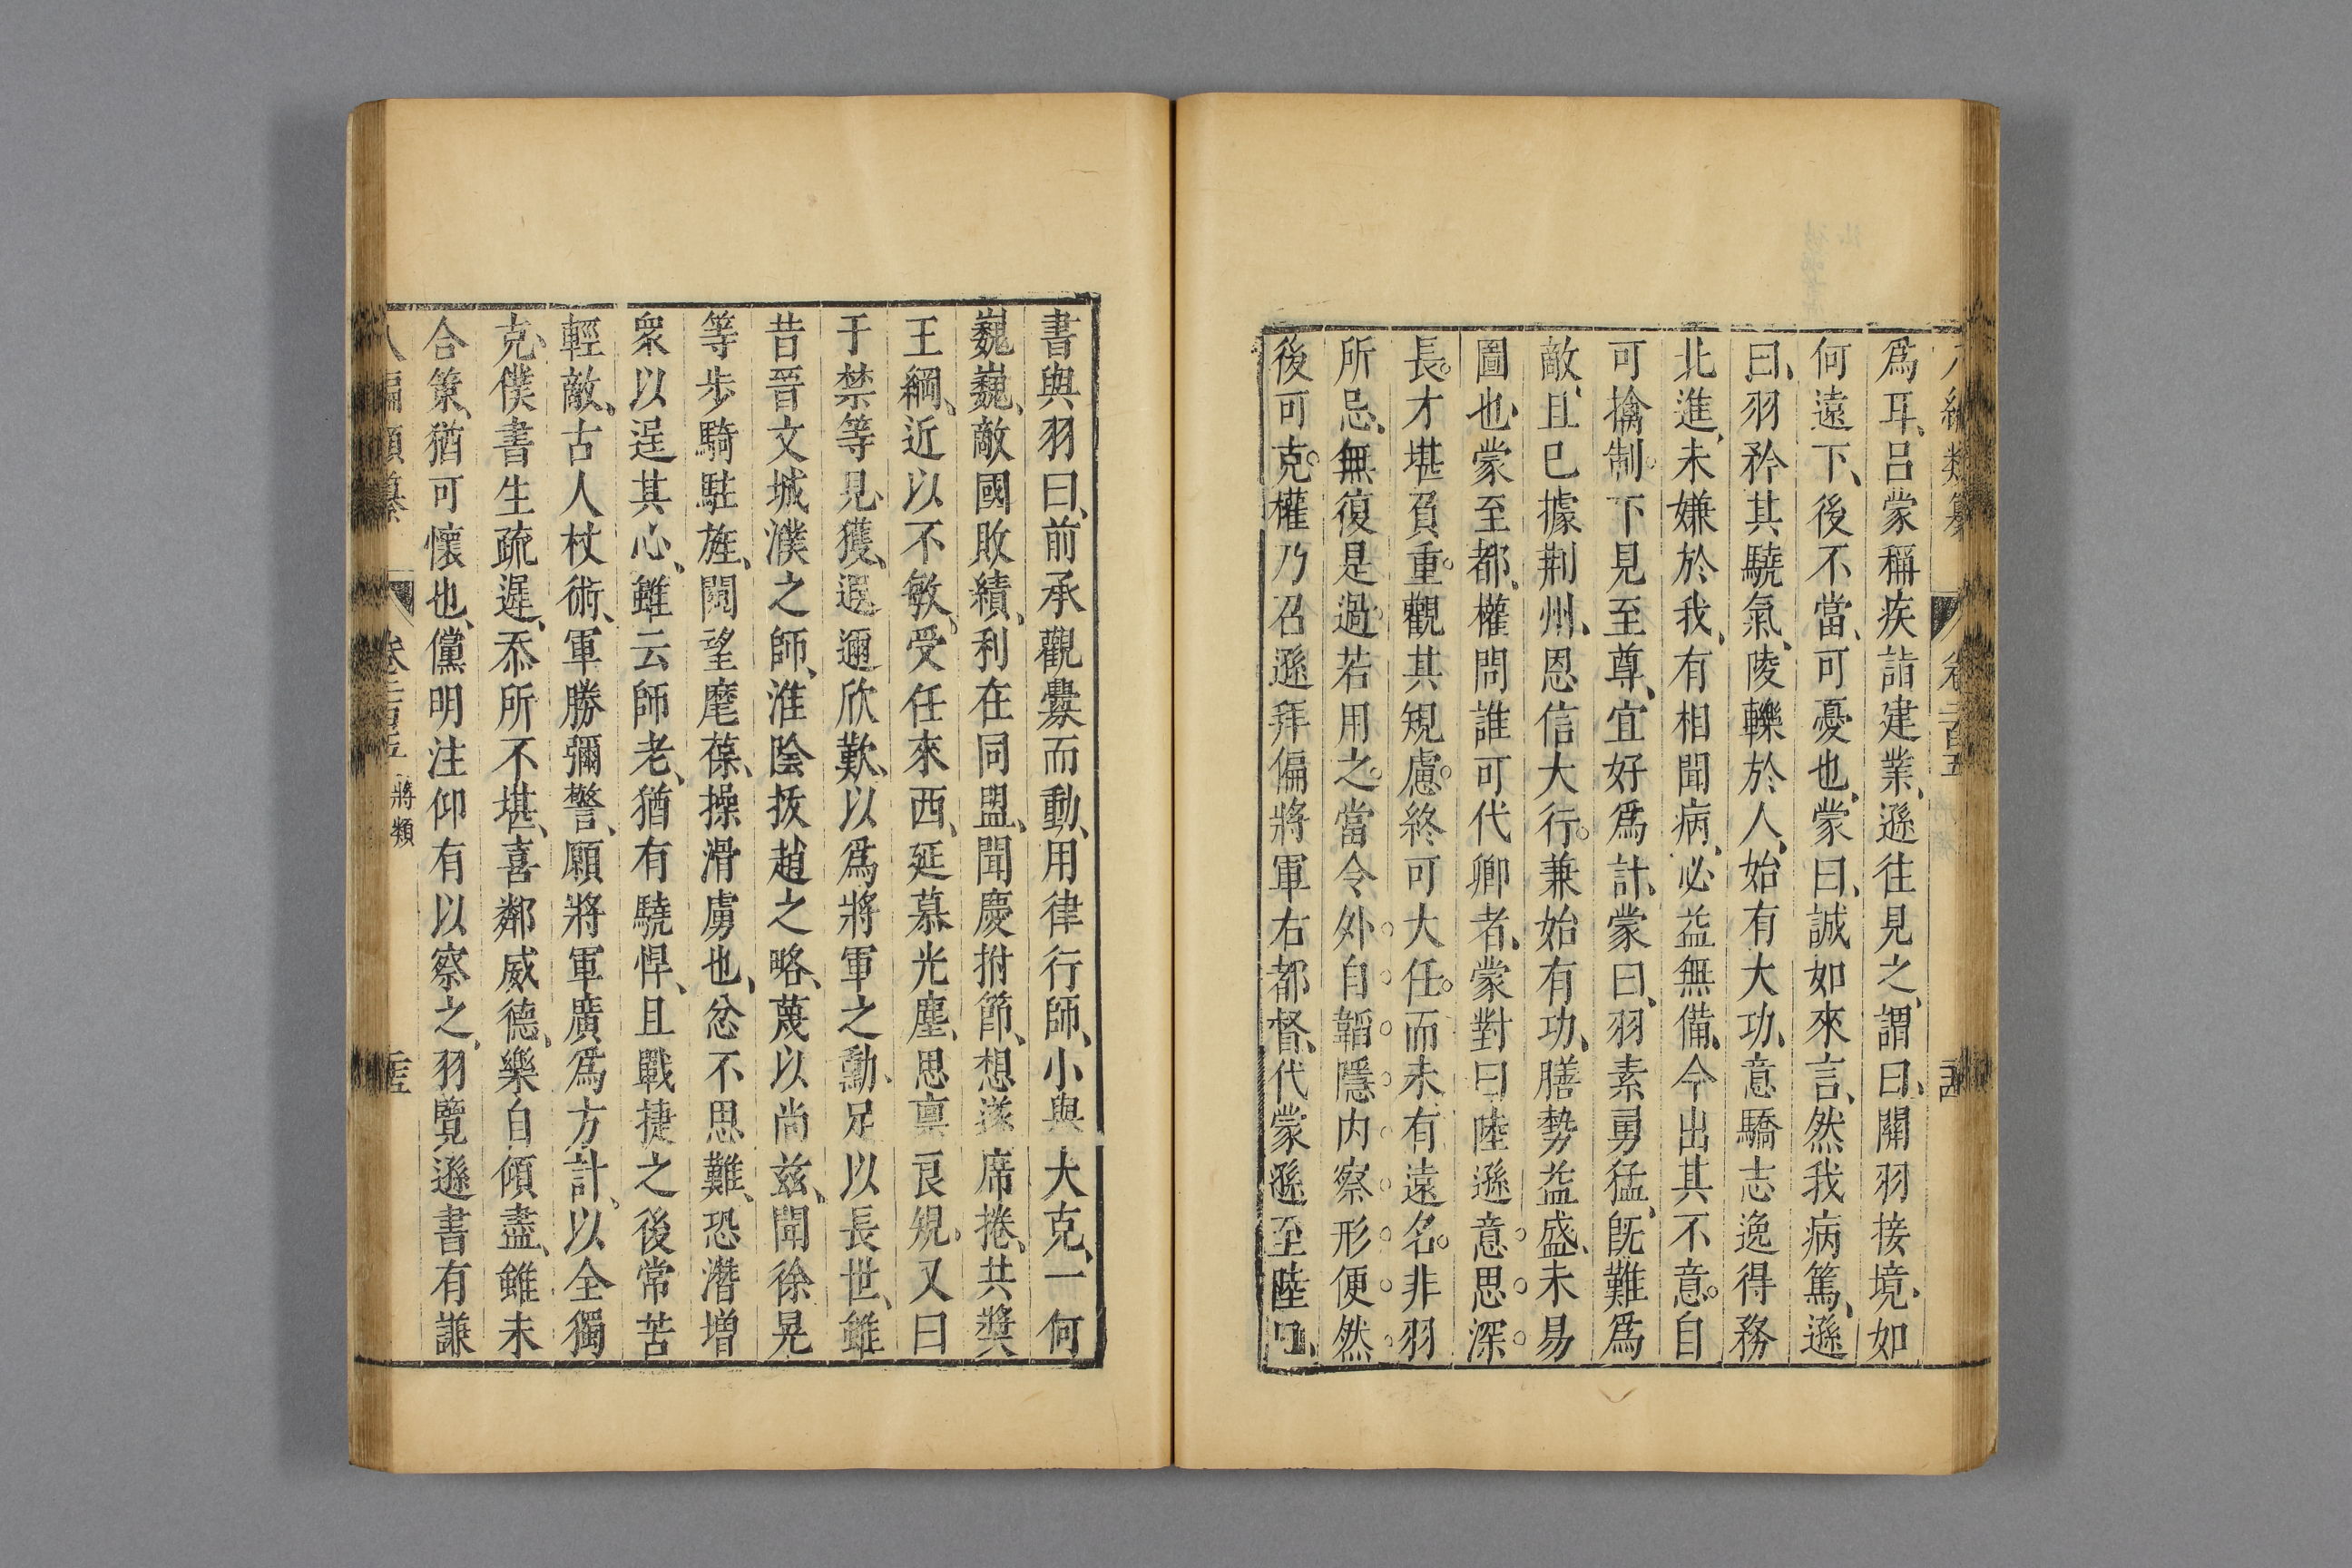 八編類纂 卷二百五
爲耳、呂蒙稱疾詣建業、遜往見之、謂曰、關羽接境、如
何遠下、後不當、可憂也、蒙曰、誠如來言、然我病篤、遜
曰、羽矜其驍氣、陵轢於人、始有大功、意驕志逸得務
北進、未嫌於我、有相聞病、必益無備、今出其不意。自
可擒制。下見至尊、宜好爲計、蒙曰、羽素勇猛、旣難爲
敵、且已據荆州、恩信大行。兼始有功、膳勢益盛、未易
圖也、蒙至都、權問誰可代卿者、蒙對曰陸遜意思深
長。才堪負重。觀其規慮。終可大任。而未有遠名。非羽
所忌、無復是過。若用之。當令外自韜隱内察形便然
後可克。權乃召遜拜偏將軍右都督、代蒙遜至陸口、
書與羽曰、前承觀釁而動、用律行師、小與大克、一何
巍巍、敵國敗績、利在同盟、聞慶拊節、想遂席捲、共奬
王綱、近以不敏、受任來西、延慕光塵、思禀良規。又曰
于禁等見獲、遐邇欣歎、以爲將軍之勳、足以長世、雖
昔晉文城濮之師、淮陰拔趙之略、蔑以尚兹、聞徐晃
等步騎駐旌、闚望麾葆、操滑虜也、忿不思難、恐潛增
衆以逞其心、雖云師老、猶有驍悍、且戰捷之後常苦
輕敵、古人杖術、軍勝彌警、願將軍廣爲方計、以全獨
克、僕書生疏遲、忝所不堪、喜鄰威德、樂自傾盡、雖未
合策、猶可懷也、儻明注仰有以察之、羽覽遜書有謙
八編類纂 卷二百五 將類